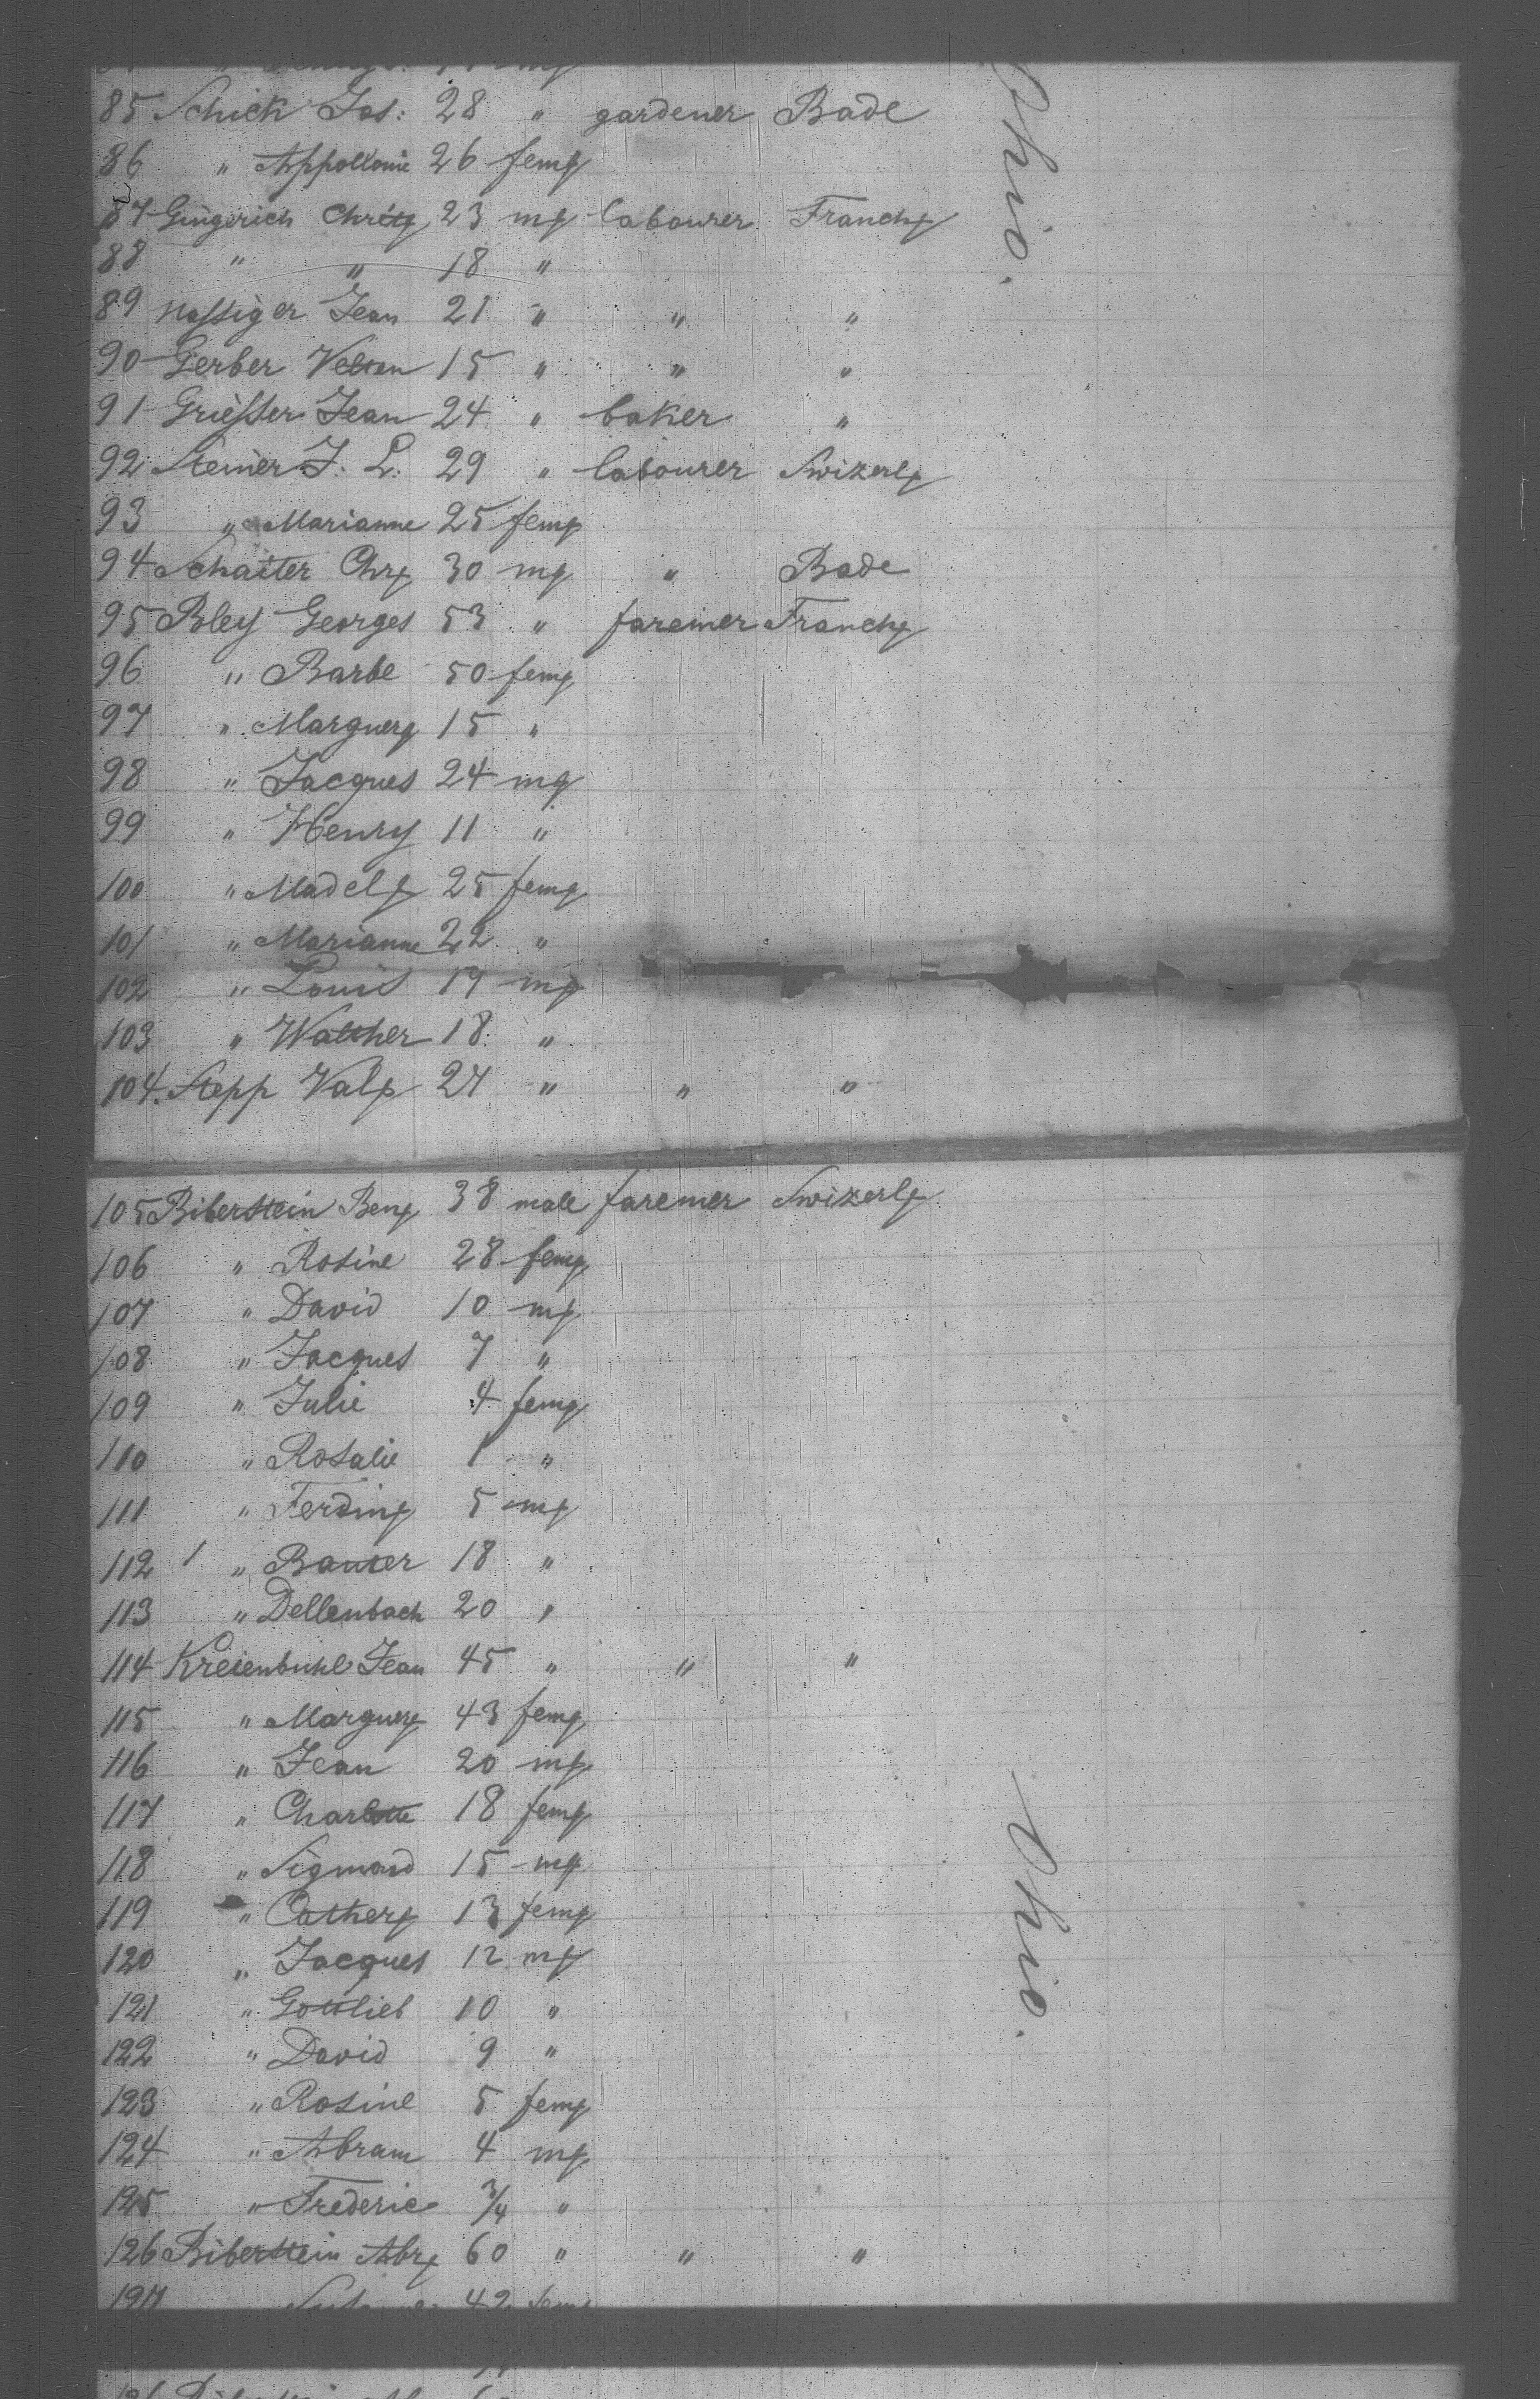 85 Schick Jos: 28 " gardener Bade
86 " Appollonie 26 fem
87 Gingerich Chrit 23 m labourer Franch
88 " " 18 "
89 Nafsiger Jean 21 " " "
90 Gerber Veltan 15 " " "
91 Griesser Jean 24 " baker "
92 Steiner J. L. 29 " labourer Swizerl
93 " Marianne 25 fem
94 Schaiter Chr 30 m " Bade
95 Bley Georges 53 " faremer Franch
96 " Barbe 50 fem
97 " Marguer 15 "
98 " Jacques 24 m
99 " Henry 11 "
100 " Madel 25 fem
101 " Marianne 22 "
102 " Louis 19 m
103 " Walther 18 "
104. Stepp Val 27 " " "
105 Biberstein Ben 38 male faremer Swizerl
106 " Rosine 28 fem
107 " David 10 m
108 " Jacques 7 "
109 " Julie 4 fem
110 " Rosalie 1 "
111 " Ferdin 5 m
112 1 " Bauter 18 "
113 " Dellenbach 20 "
114 Kreienbuhl Jean 45 " " "
115 " Marguer 43 fem
116 " Jean 20 m
117 " Charlotte 18 fem
118 " Sigmond 15 m
119 " Cather 13 fem
120 " Jacques 12 m
121 " Gottlieb 10 "
122 " David 9 "
123 " Rosine 5 fem
124 " Abram 4 m
125 " Frederic 3/4 "
126 Biberstein Abr 60 " " "
127 42 fem
Ohio.
Ohio.